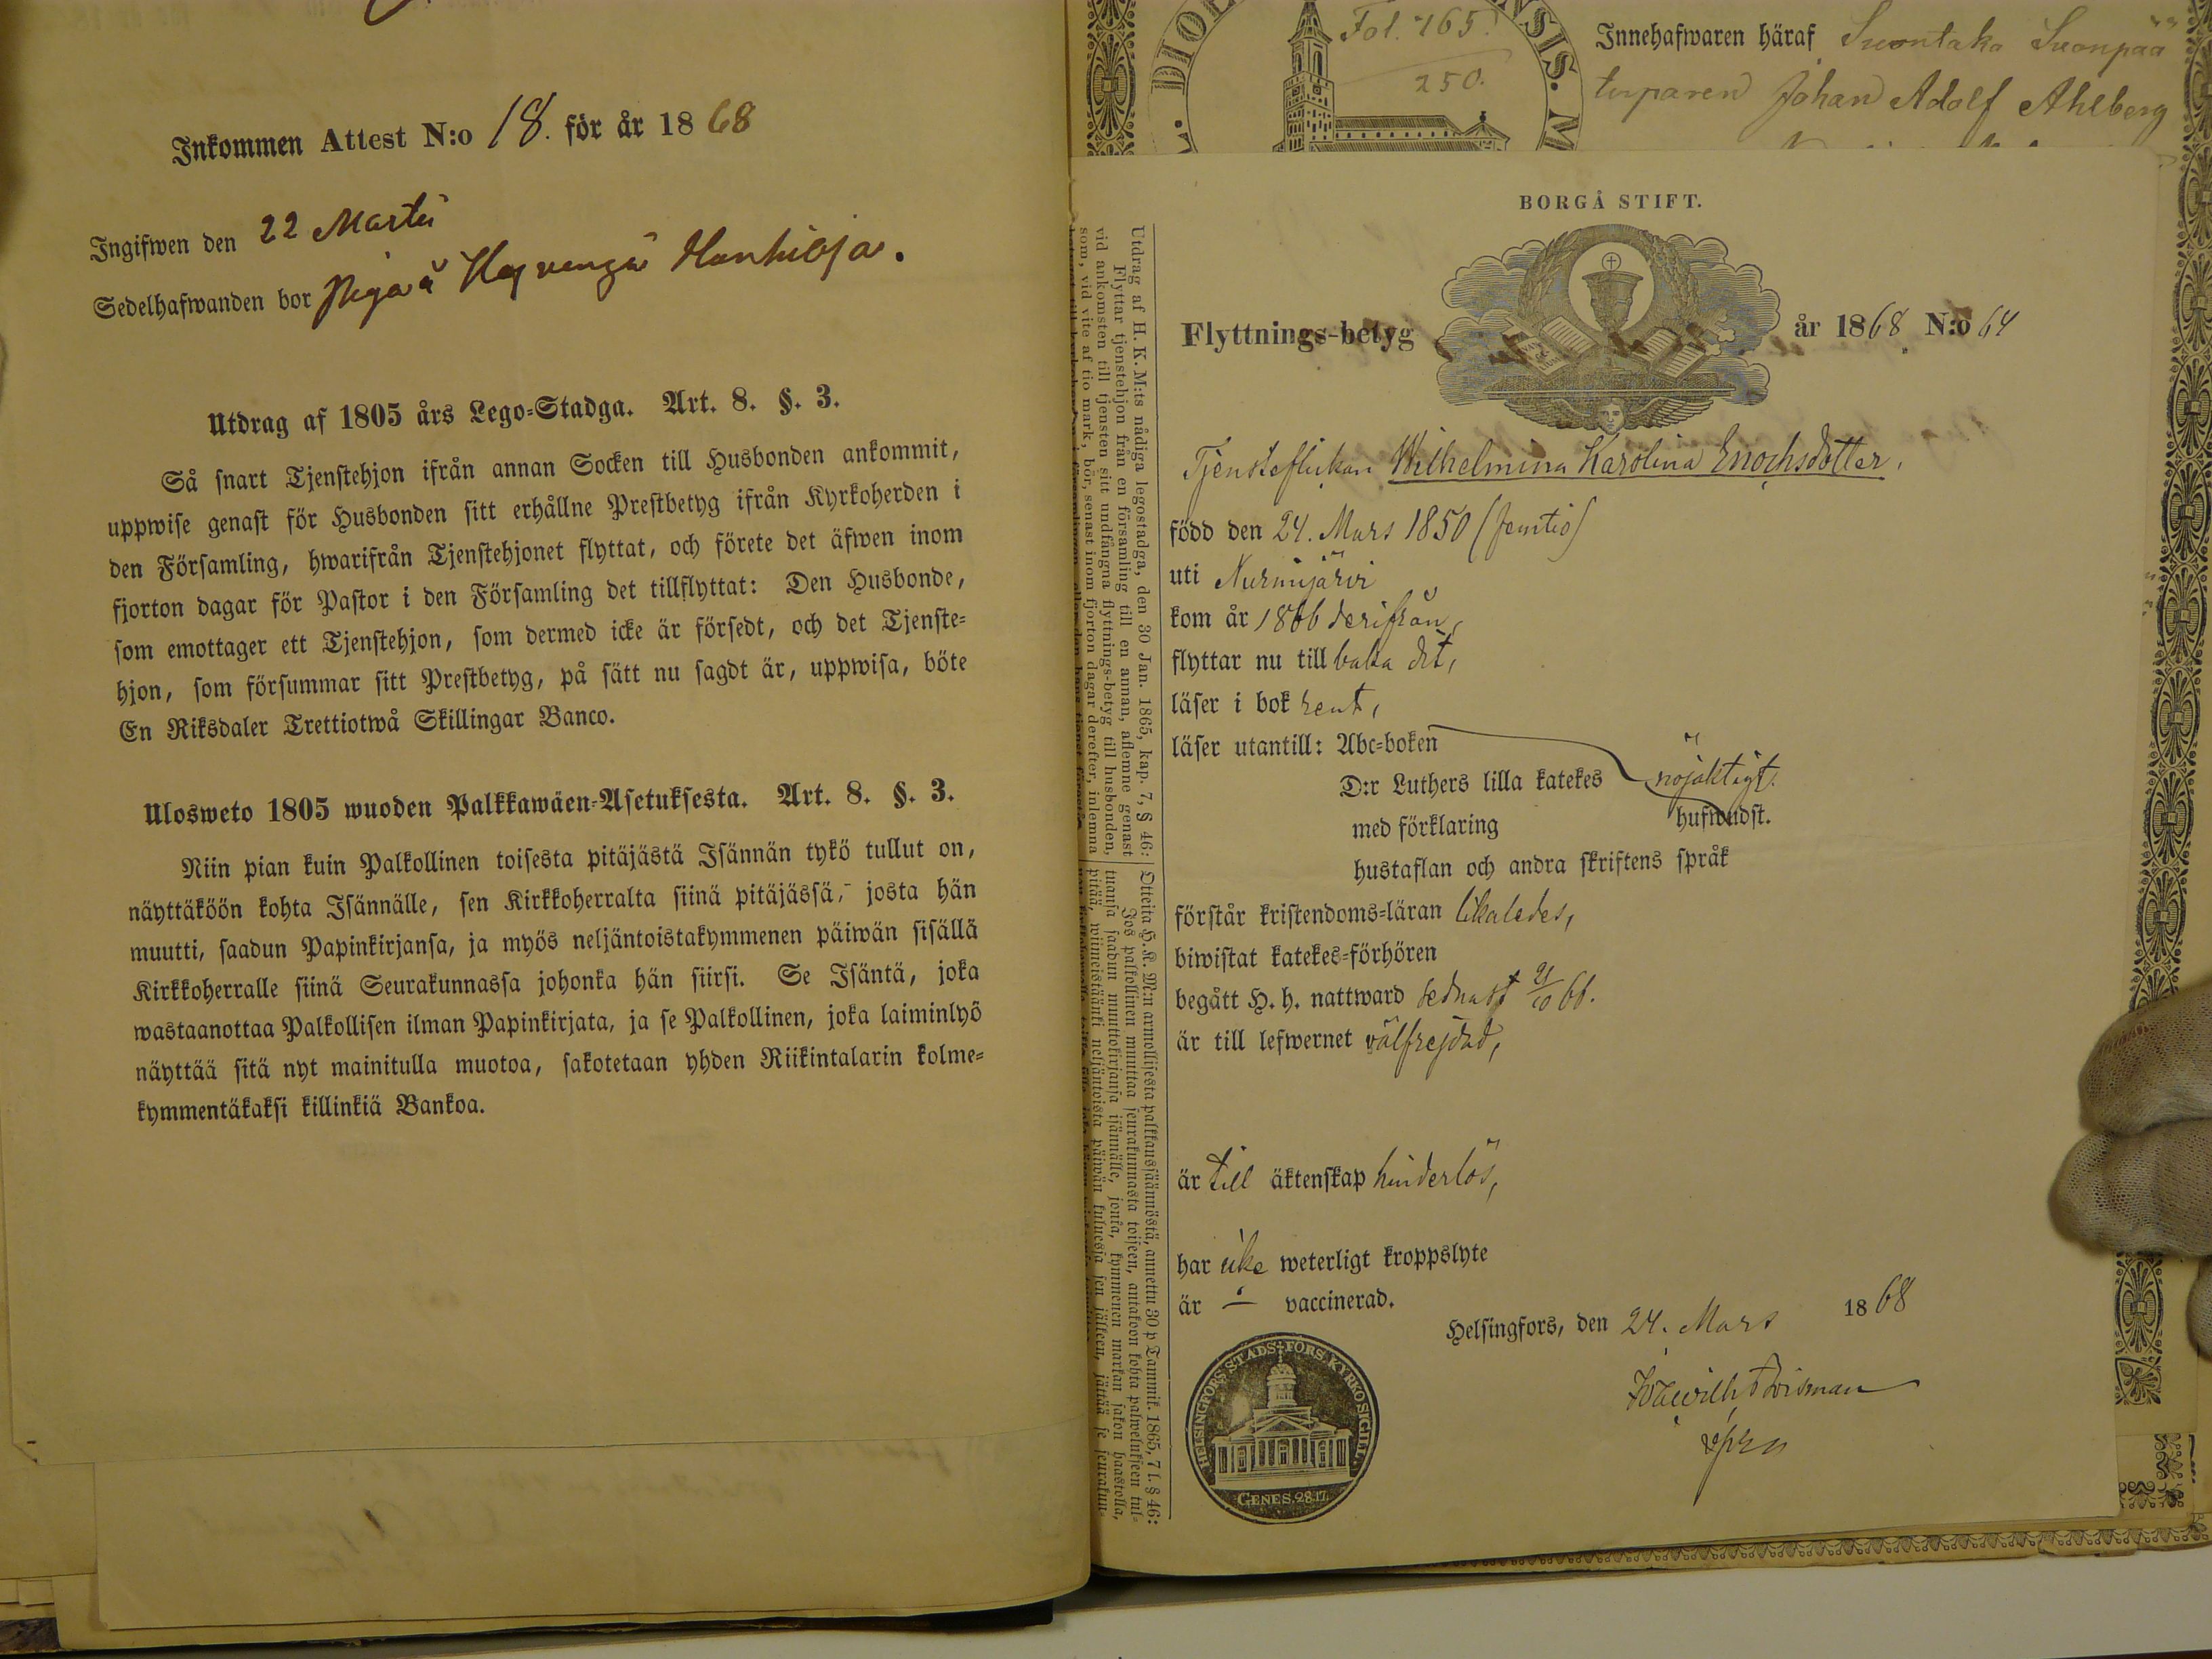 Inkommen Attest N:o 18. för år 1868
Ingifwen den 22 Martii
Sedelhafwanden bor Piga å
Utdrag af 1805 års Lego-Stadga. Art. 8. §. 3.
Så snart Tjenstehjon ifrån annan Socken till Husbonden ankommit,
uppwise genast för Husbonden sitt erhållne Prestbetyg ifrån Kyrkoherden i
den Församling, hwarifrån Tjenstehjonet flyttat, och förete det äfwen inom
fjorton dagar för Pastor i den Församling det tillflyttat: Den Husbonde,
som emottager ett Tjenstehjon, som dermed icke är försedt, och det Tjenste-
hjon, som försummar sitt Prestbetyg, på sätt nu sagdt är, uppwisa, böte
En Riksdaler Trettiotwå Skillingar Banco.
Ulosweto 1805 wuoden Palkkawäen-Asetuksesta. Art. 8. §. 3.
Niin pian kuin Palkollinen toisesta pitäjästä Isännän tykö tullut on,
näyttäköön kohta Isännälle, sen Kirkkoherralta siinä pitäjässä, josta hän
muutti, saadun Papinkirjansa, ja myös neljäntoistakymmenen päiwän sisällä
Kirkkoherralle siinä Seurakunnassa johonka hän siirsi. Se Isäntä, joka
wastaanottaa Palkollisen ilman Papinkirjata, ja se Palkollinen, joka laiminlyö
näyttää sitä nyt mainitulla muotoa, sakotetaan yhden Riikintalarin kolme-
kymmentäkaksi killinkiä Bankoa.
Fol. 165.
250.
Innehafwaren häraf Suontaka Suonpää
torparen Johan Adolf Ahlberg
BORGÅ STIFT.
Flyttnings-betyg år 1868 N:o 64
Tjensteflickan Wilhelmina Karolina Enochsdotter,
född den 24. Mars 1850 (femtio)
uti Nurmijärvi
kom år 1866 derifrån,
flyttar nu till baka dit,
läser i bok rent,
läser utantill: Abc-boken
D:r Luthers lilla katekes nöjaktigt.
med förklaring hufwudst.
hustaflan och andra skriftens språk
förstår kristendoms-läran likaledes,
biwistat katekes-förhören
begått H. h. nattward sednast 21/10 66.
är till lefwernet välfrejdad,
är till äktenskap hinderlös,
har icke weterligt kroppslyte
är ÷ vaccinerad.
Helsingfors, den 24. Mars 1868
HELSINGFORS STADS FÖRS. KYRKO SIGILL.
GENES. 28.17.
Utdrag af H. K. M:ts nådiga legostadga, den 30 Jan. 1865, kap. 7, § 46:
Flyttar tjenstehjon från en församling till en annan, aflemne genast
vid ankomsten till tjensten sitt undfångna flyttnings-betyg till husbonden,
som, vid vite af tio mark, bör, senast inom fjorton dagar derefter, inlemna
Otteita H. K. M:n armollisesta palkkaussäännöstä, annettu 30 p Tammik. 1865, 7 l. § 46:
Jos palkollinen muuttaa seurakunnasta toiseen, antakoon kohta palwelukseen tul-
tuansa saadun muuttokirjansa isännälle, jonka, kymmenen markan sakon haastolla,
pitää, wiimeistäänki neljäntoista päiwän kuluessa sen jälkeen, jättää se seurakun-